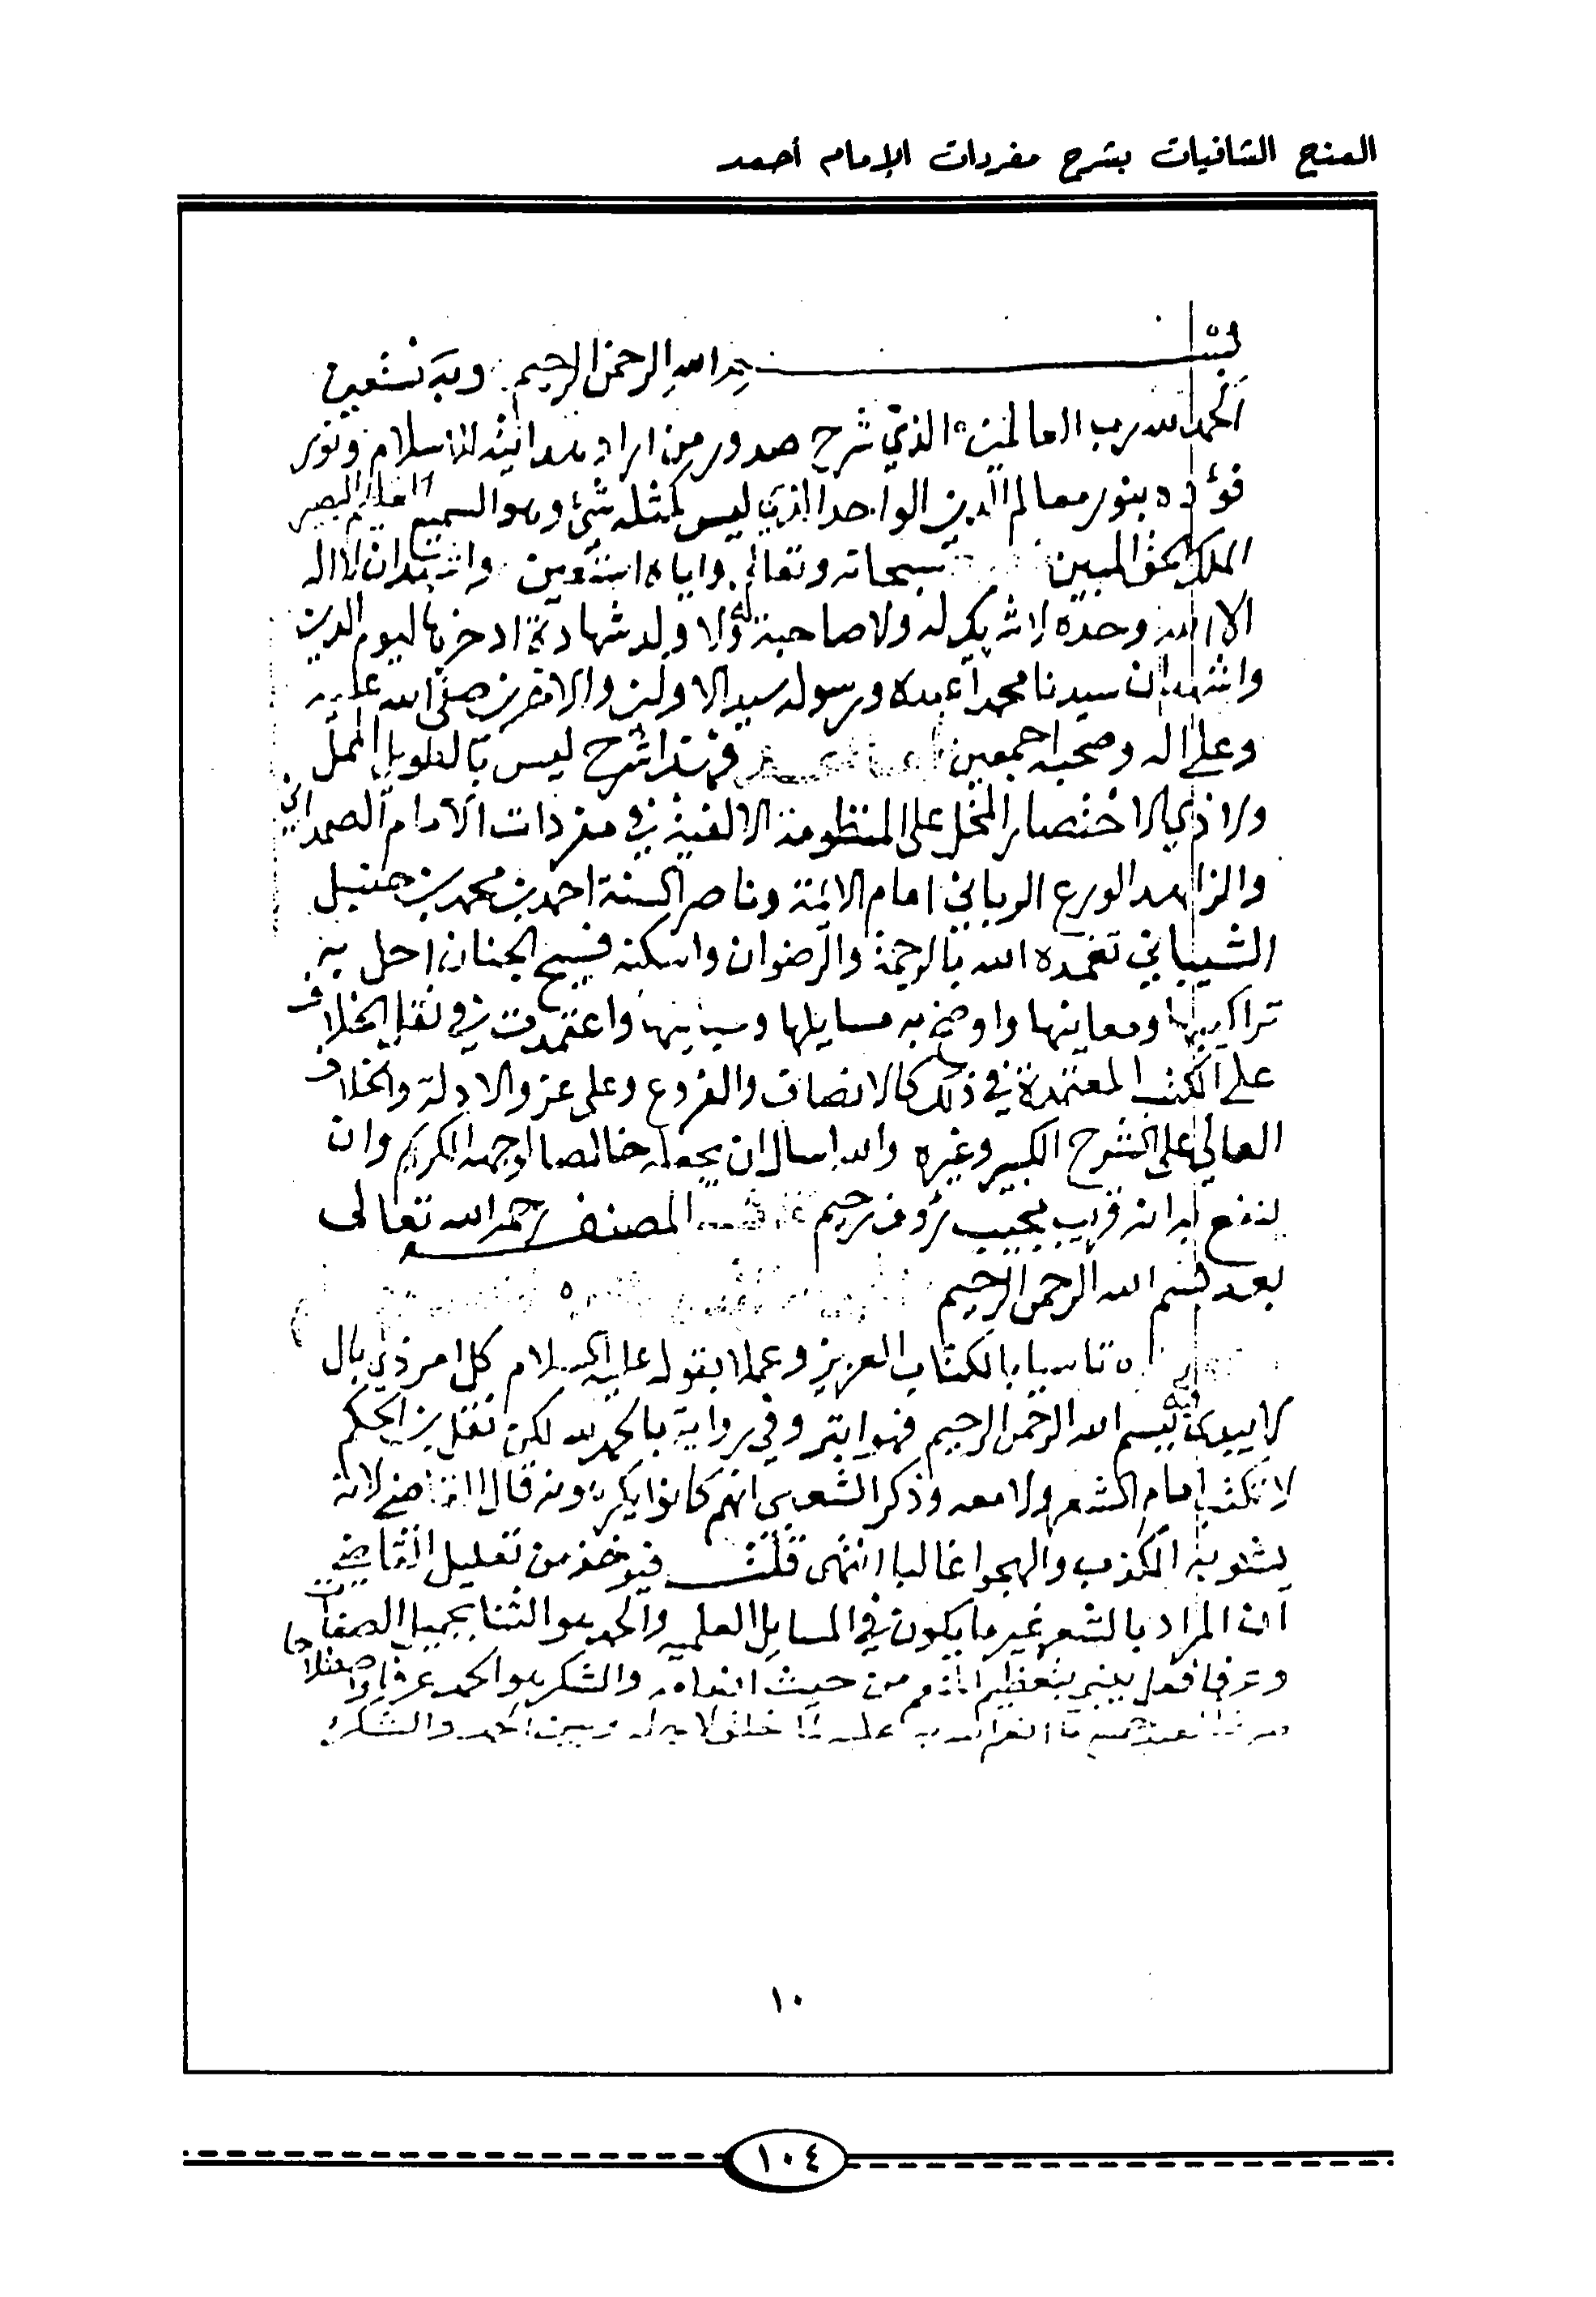 المنح الشافيات بشرح مفردات الإمام أحمد
بسم الله الرحمن الرحيم وبه نستعين
الحمد لله رب العالمين الذي شرح صدور من اراد هدايته للاسلام ونور
فؤاده بنور معالم الدين الواحد الذي ليس كمثله شئ وهو السميع البصير
الملك الحق المبين سبحانه وتعالى واياه استعين واشهد ان لا اله
الا الله وحده لا شريك له ولا صاحبة له ولا ولد شهادة ادخرها ليوم الدين
واشهد ان سيدنا محمدا عبده ورسوله سيد الاولين والاخرين صلى الله عليه
وعلى اله وصحبه اجمعين فهذا شرح ليس بالطويل الممل
ولا ذي الاختصار المخل على المنظومة الالفية في مفردات الامام الصمداني
والزاهد الورع الرباني امام الائمة وناصر السنة احمد بن محمد بن حنبل
الشيباني تغمده الله بالرحمة والرضوان واسكنه فسيح الجنان احل به
تراكيبها ومعانيها واوضح به مسايلها ومبانيها واعتمدت في نقل الخلاف
على الكتب المعتمدة في ذلك كالانصاف والفروع وعلى عزو الادلة والخلاف
العالي على الشرح الكبير وغيره والله اسال ان يجعله خالصا لوجهه الكريم وان
ينفع به انه قريب مجيب رؤف رحيم المصنف رحمه الله تعالى
بعد بسم الله الرحمن الرحيم
تاسيا بالكتاب العزيز وعملا بقوله عليه السلام كل امر ذي بال
لا يبدى فيه ببسم الله الرحمن الرحيم فهو ابتر وفي رواية بالحمد لله لكن نقل ابن الحكم
لا تكتب امام الشعر ولا معه وذكر الشعبي انهم كانوا يكرهونه قال القاضي لانه
يشوبه الكذب والهجوا غالبا انتهى قلت فيوخذ من تعليل القاضي
ان المراد بالشعر غير ما يكون في المسايل العلمية والحمد هو الثنا بجميل الصفات
وعرفا فعل ينبي بتعظيم المنعم من حيث انعامه والشكر هو الحمد عرفا واصطلاحا
صرف العبد جميع ما انعم الله به عليه لما خلق لاجله وبين الحمد والشكر
١٠
١٠٤